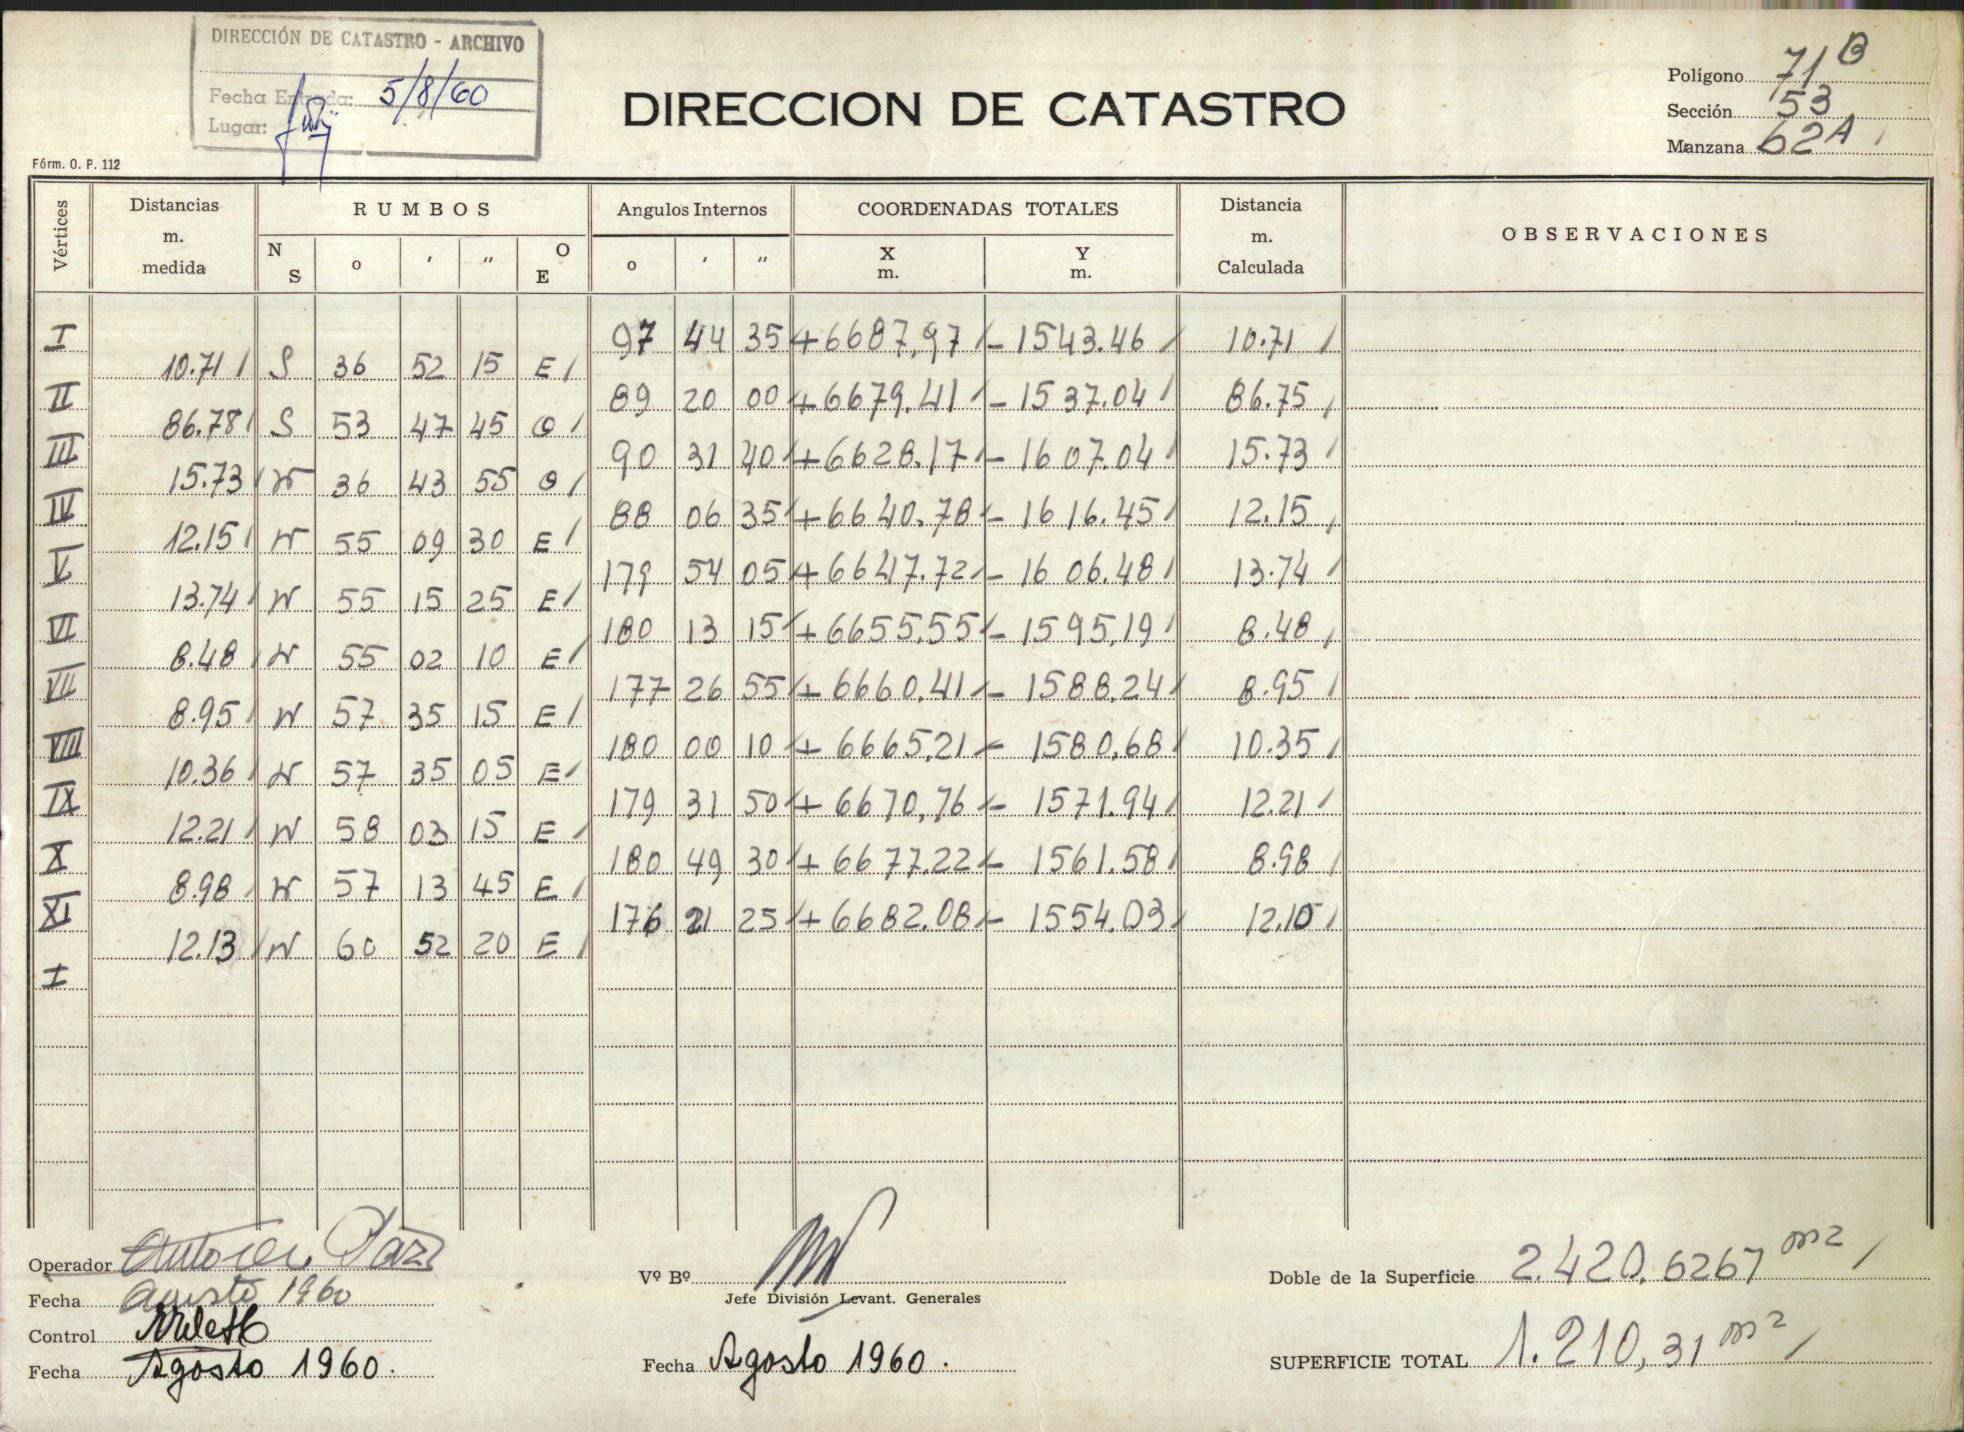 DIRECCIÓN DE CATASTRO - ARCHIVO
Fecha Entrada: 5/8/60
Lugar:
DIRECCION DE CATASTRO
Polígono 71 B
Sección 53
Manzana 62A
Fórm. O. P. 112
Vértices Distancias m. medida RUMBOS Angulos Internos COORDENADAS TOTALES Distancia m. Calculada OBSERVACIONES
N S o ' " O E o ' " X m. Y m.
I 97 44 35 +6687,97 - 1543.46 10.71
10.71 S 36 52 15 E
II 89 20 00 +6679.41 - 1537.04 86.75
86.78 S 53 47 45 O
III 90 31 40 +6628.17 - 1607.04 15.73
15.73 N 36 43 55 O
IV 88 06 35 +6640.78 - 1616.45 12.15
12.15 N 55 09 30 E
V 179 54 05 +6647.72 - 1606.48 13.74
13.74 N 55 15 25 E
VI 180 13 15 +6655.55 - 1595,19 8.48
8.48 N 55 02 10 E
VII 177 26 55 +6660.41 - 1588.24 8.95
8.95 N 57 35 15 E
VIII 180 00 10 +6665,21 - 1580,68 10.35
10.36 N 57 35 05 E
IX 179 31 50 +6670,76 - 1571.94 12.21
12.21 N 58 03 15 E
X 180 49 30 +6677.22 - 1561.58 8.98
8.98 N 57 13 45 E
XI 176 21 25 +6682.08 - 1554.03 12.10
12.13 N 60 52 20 E
I
Operador
Fecha Agosto 1960
Control
Fecha Agosto 1960.
Vº Bº
Jefe División Levant. Generales
Fecha Agosto 1960.
Doble de la Superficie 2.420.6267 m2
SUPERFICIE TOTAL 1.210,31 m2